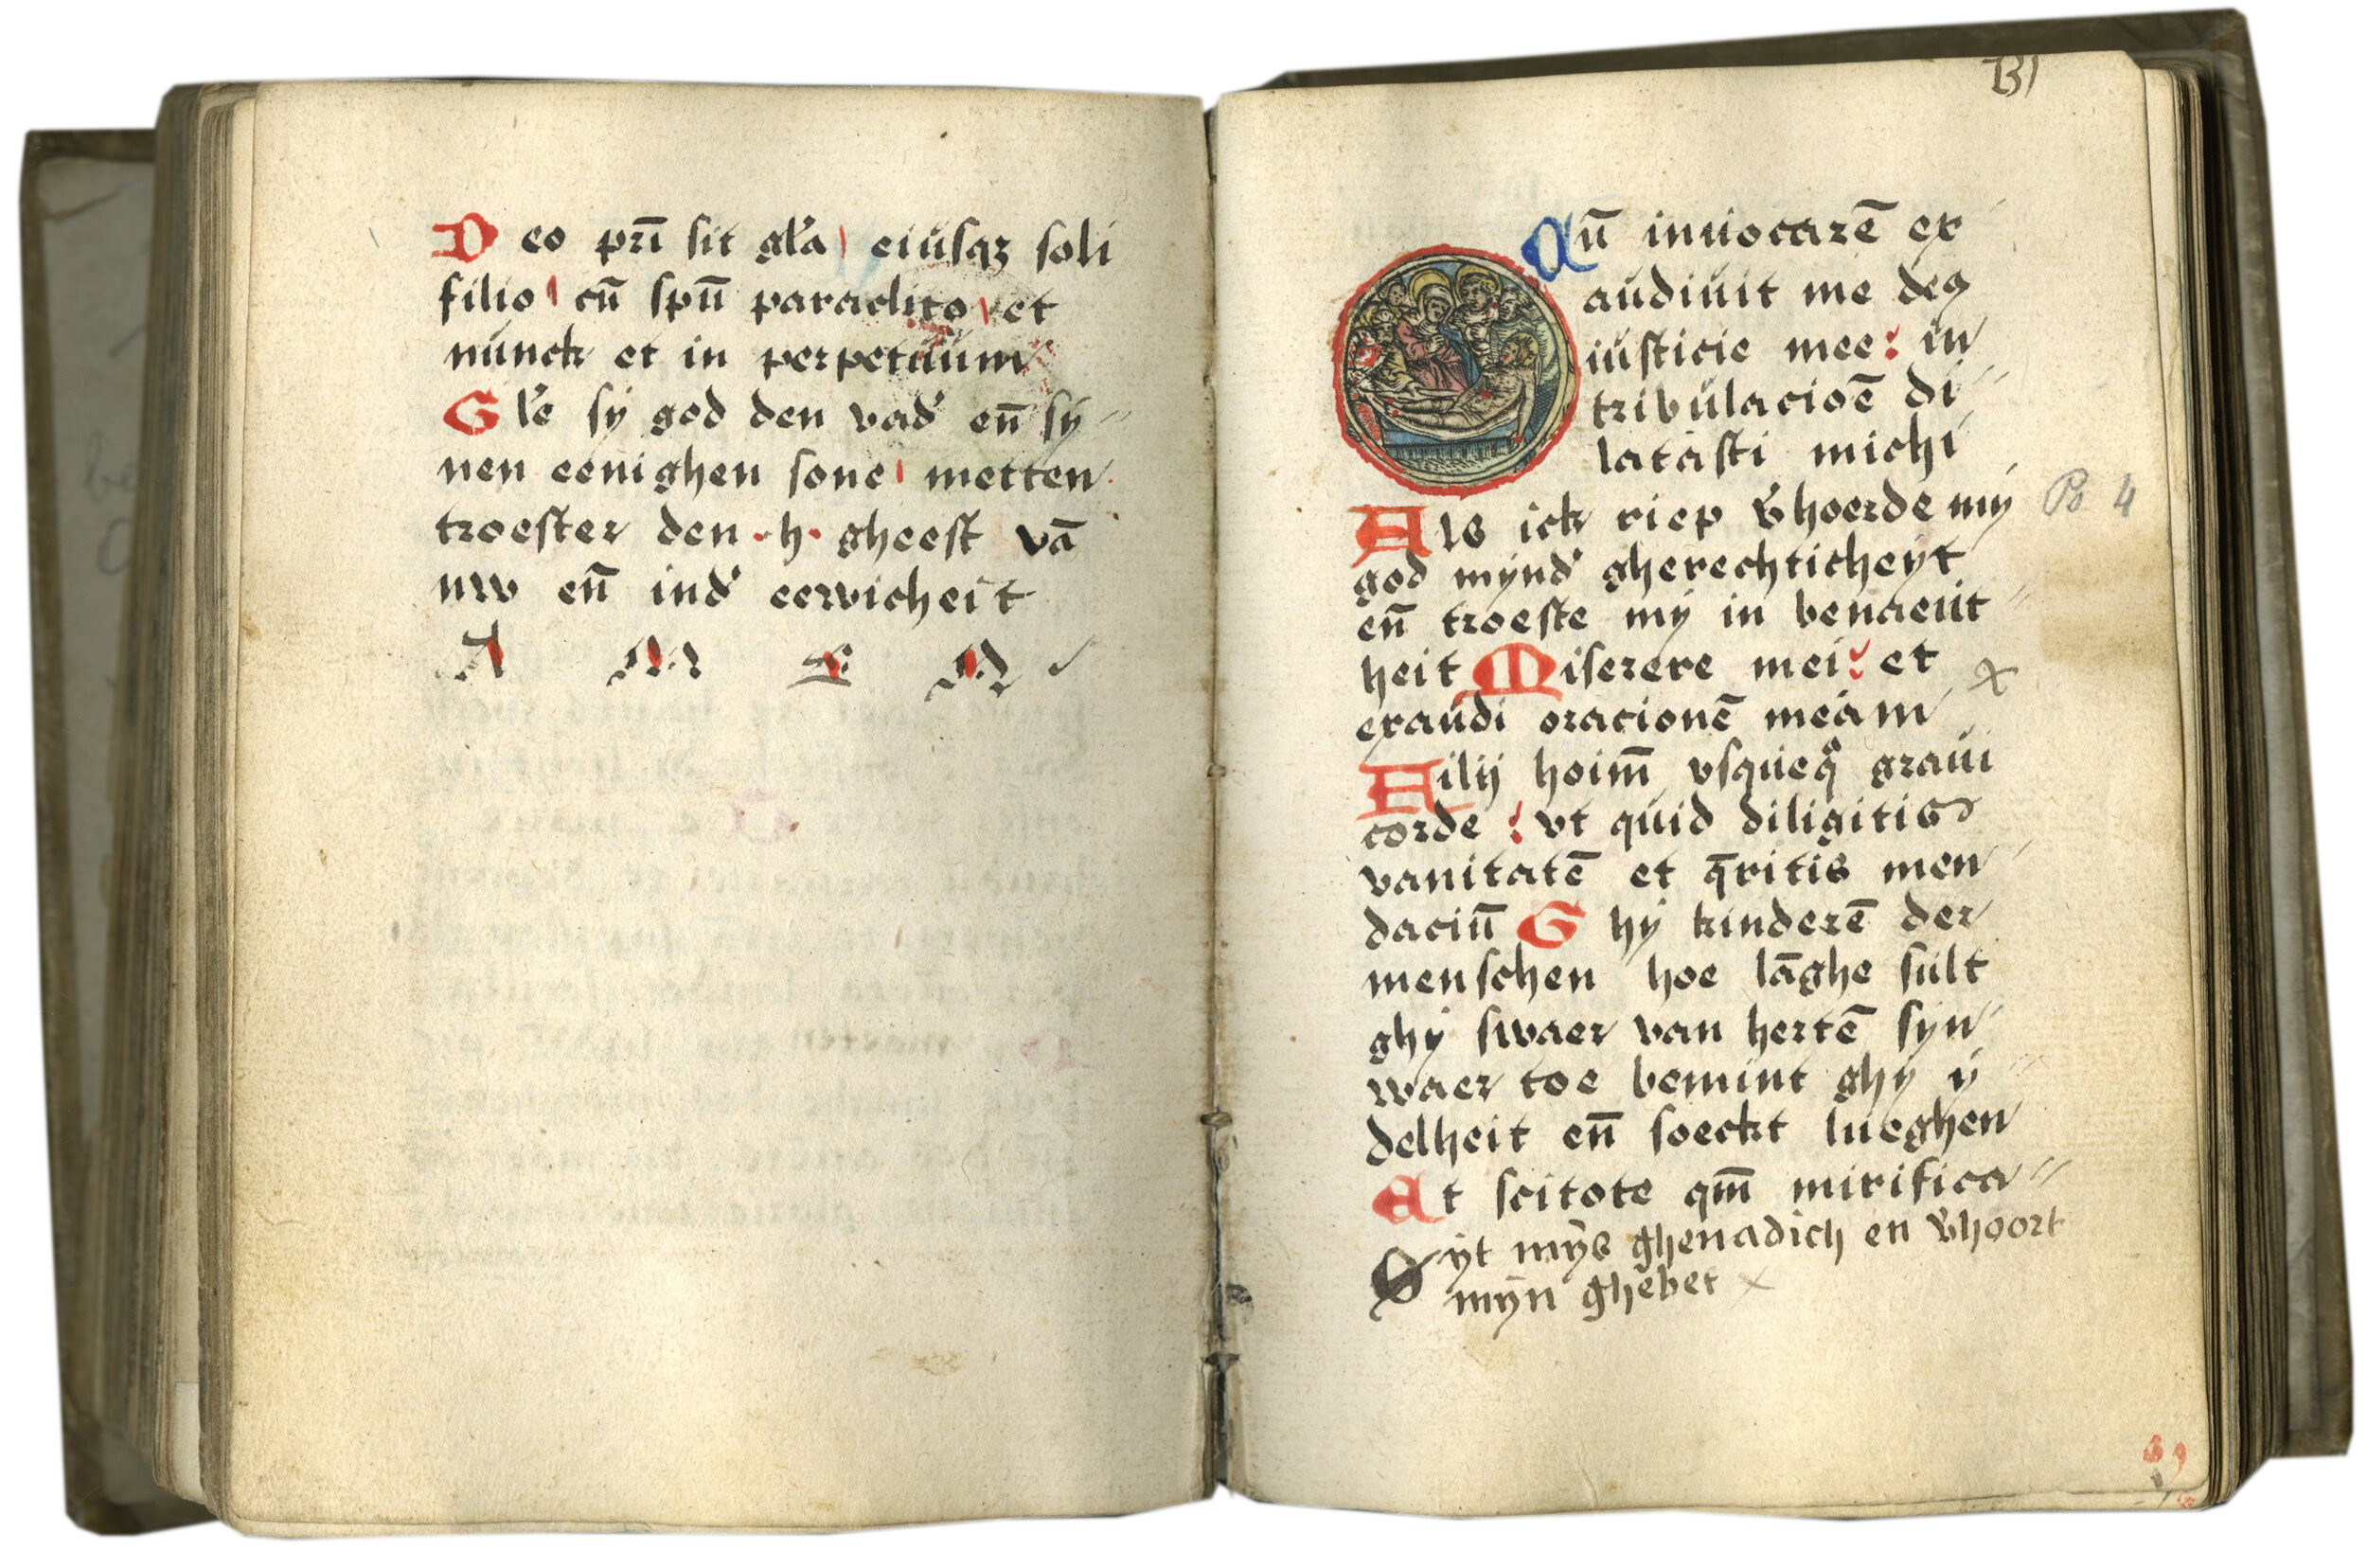 Deo pr̄i sit gl'a eiusqꝫ soli
filio cū spū paraclito et
nunck et in perpetuum
Gl'e sÿ god den vad' en̄ sÿ
nen eenighen sone metten
troester den ·h· gheest vā
nw en̄ ind' eewicheit
A M E N
Qū inuocarē ex
audiuit me deꝯ
iusticie mee: in
tribulacioē di
latasti michi
Als ick riep v'hoerde mÿ
Ps 4
god mÿnd' gherechticheÿt
en̄ troeste mÿ in benaeut
heit Miserere mei: et
exaudi oracionē meam
Filij hoim̄ vsquequͣ graui
corde: vt quid diligitis
vanitatē et q̄ritis men
daciū Ghÿ kinderē der
menschen hoe lāghe sult
ghÿ swaer van hertē sÿn
waer toe bemint ghÿ ÿ
delheit en̄ soeckt lueghen
Et scitote qm̄ mirifica
Sÿt mÿs ghenadich en v'hoort
mÿn ghebet x